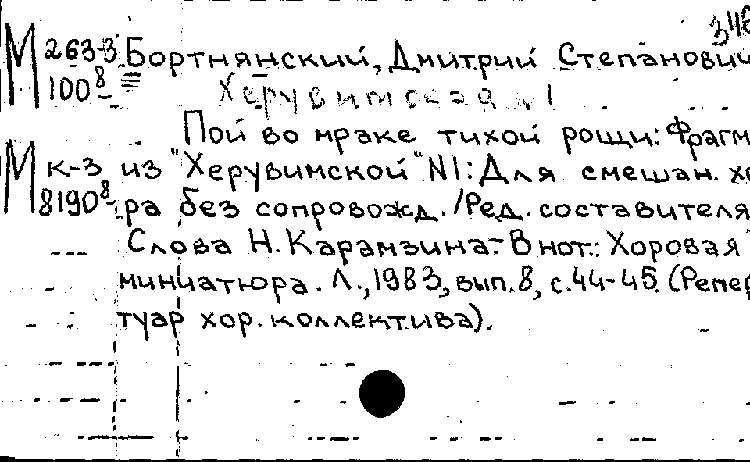 346
М 263-3 Бортнянский, Дмитрий Степанович
100⁸ Херувимская № 1
Пой во мраке тихой рощи: Фрагм
М к-3 из "Херувимской" №1: Для смешан. хо
8190⁸ ра без сопровожд./Ред. составителя
Слова Н. Карамзина.- В нот.: Хоровая
миниатюра. Л., 1983, вып. 8, с. 44-45. (Репер
туар хор. коллектива).